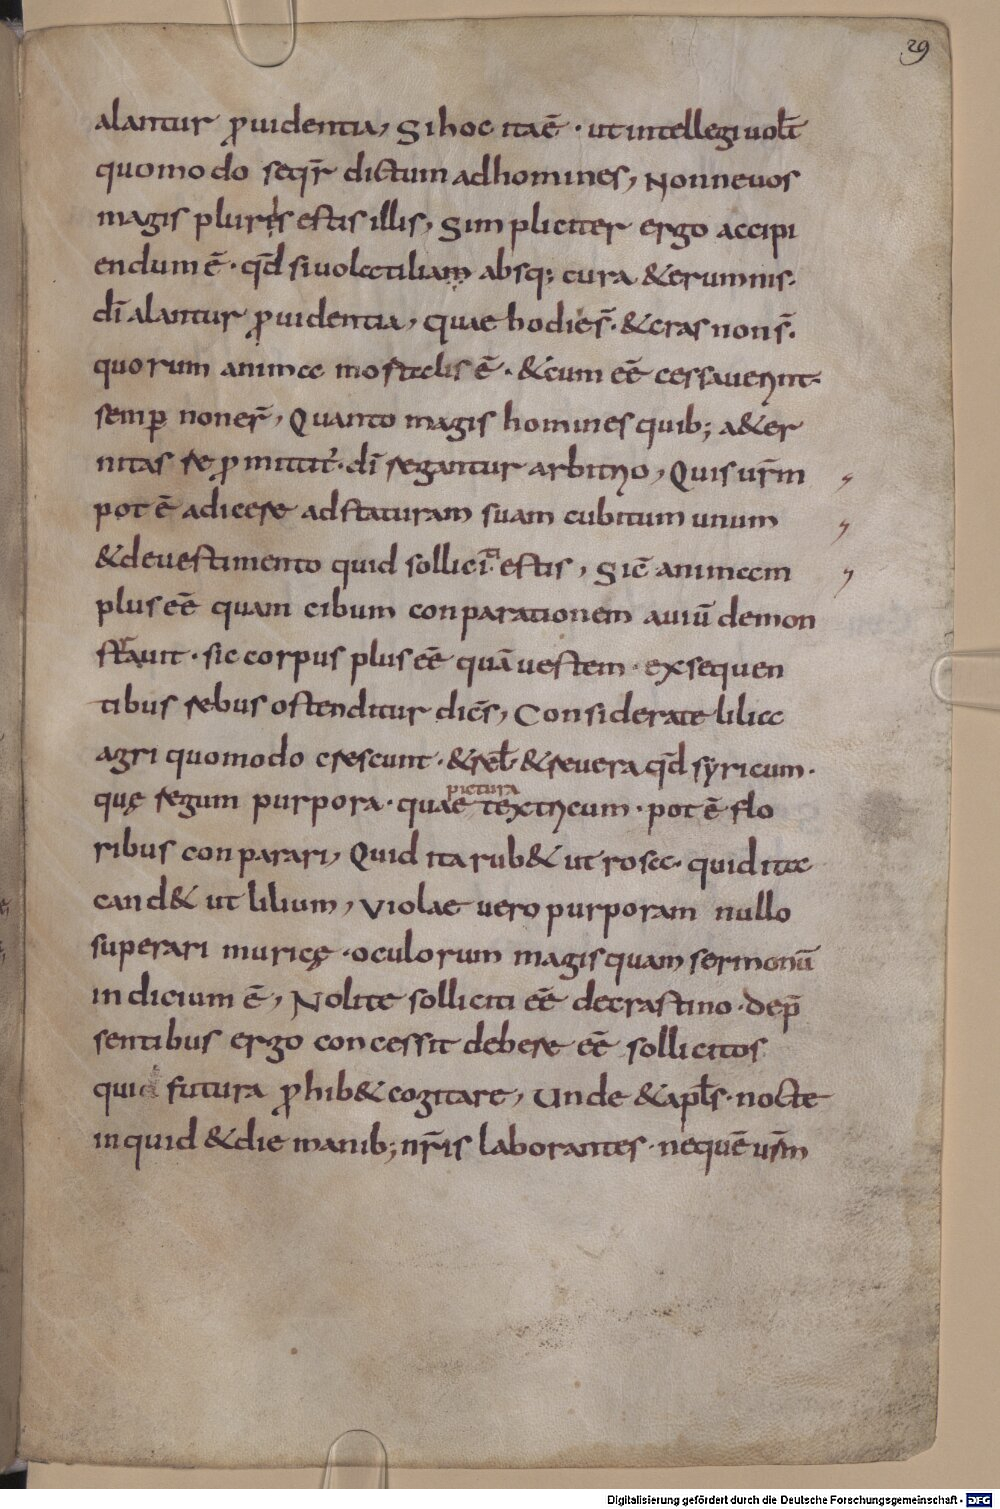 29
alantur ꝓuidentia, Si hoc ita ē · ut intellegi uolt̄
quomodo seqr̄ dictum ad homines, Nonne uos
magis pluris estis illis, Simpliciter ergo accipi
endum ē · qd̄ si uolatiliam absq; cura & erumnis ·
dī alantur ꝓuidentia, quae hodie s̄ · & cras non s̄ ·
quorum animae mortalis ē · & cum eē cessauerint ·
semꝑ non er̄, Quanto magis homines quib; a&er
nitas reꝓmittit̄ · dī regantur arbitrio, Quis ur̄m
pot ē adicere ad staturam suam cubitum unum
& de uestimento quid solliciti estis, Sic̄ animam
plus eē quam cibum conparationem auiū demon
strauit · sic corpus plus eē quā uestem · ex sequen
tibus rebus ostenditur dices̄, Considerate lilia
agri quomodo crescunt · & rel̄ · & reuera qd̄ syricum ·
quę regum purpora · quae pictura textricum · pot ē flo
ribus conparari, Quid ita rub& ut rosa · quid ita
cand& ut lilium, Violae uero purporam nullo
superari muricę · oculorum magis quam sermonū
indicium ē, Nolite solliciti eē de crastino · de p̄
sentibus ergo concessit debere eē sollicitos
qui futura ꝓhib& cogitare, Unde & apl̄s · nocte
inquid & die manib; nr̄is laborantes · ne quē ur̄m
Digitalisierung gefördert durch die Deutsche Forschungsgemeinschaft - DFG